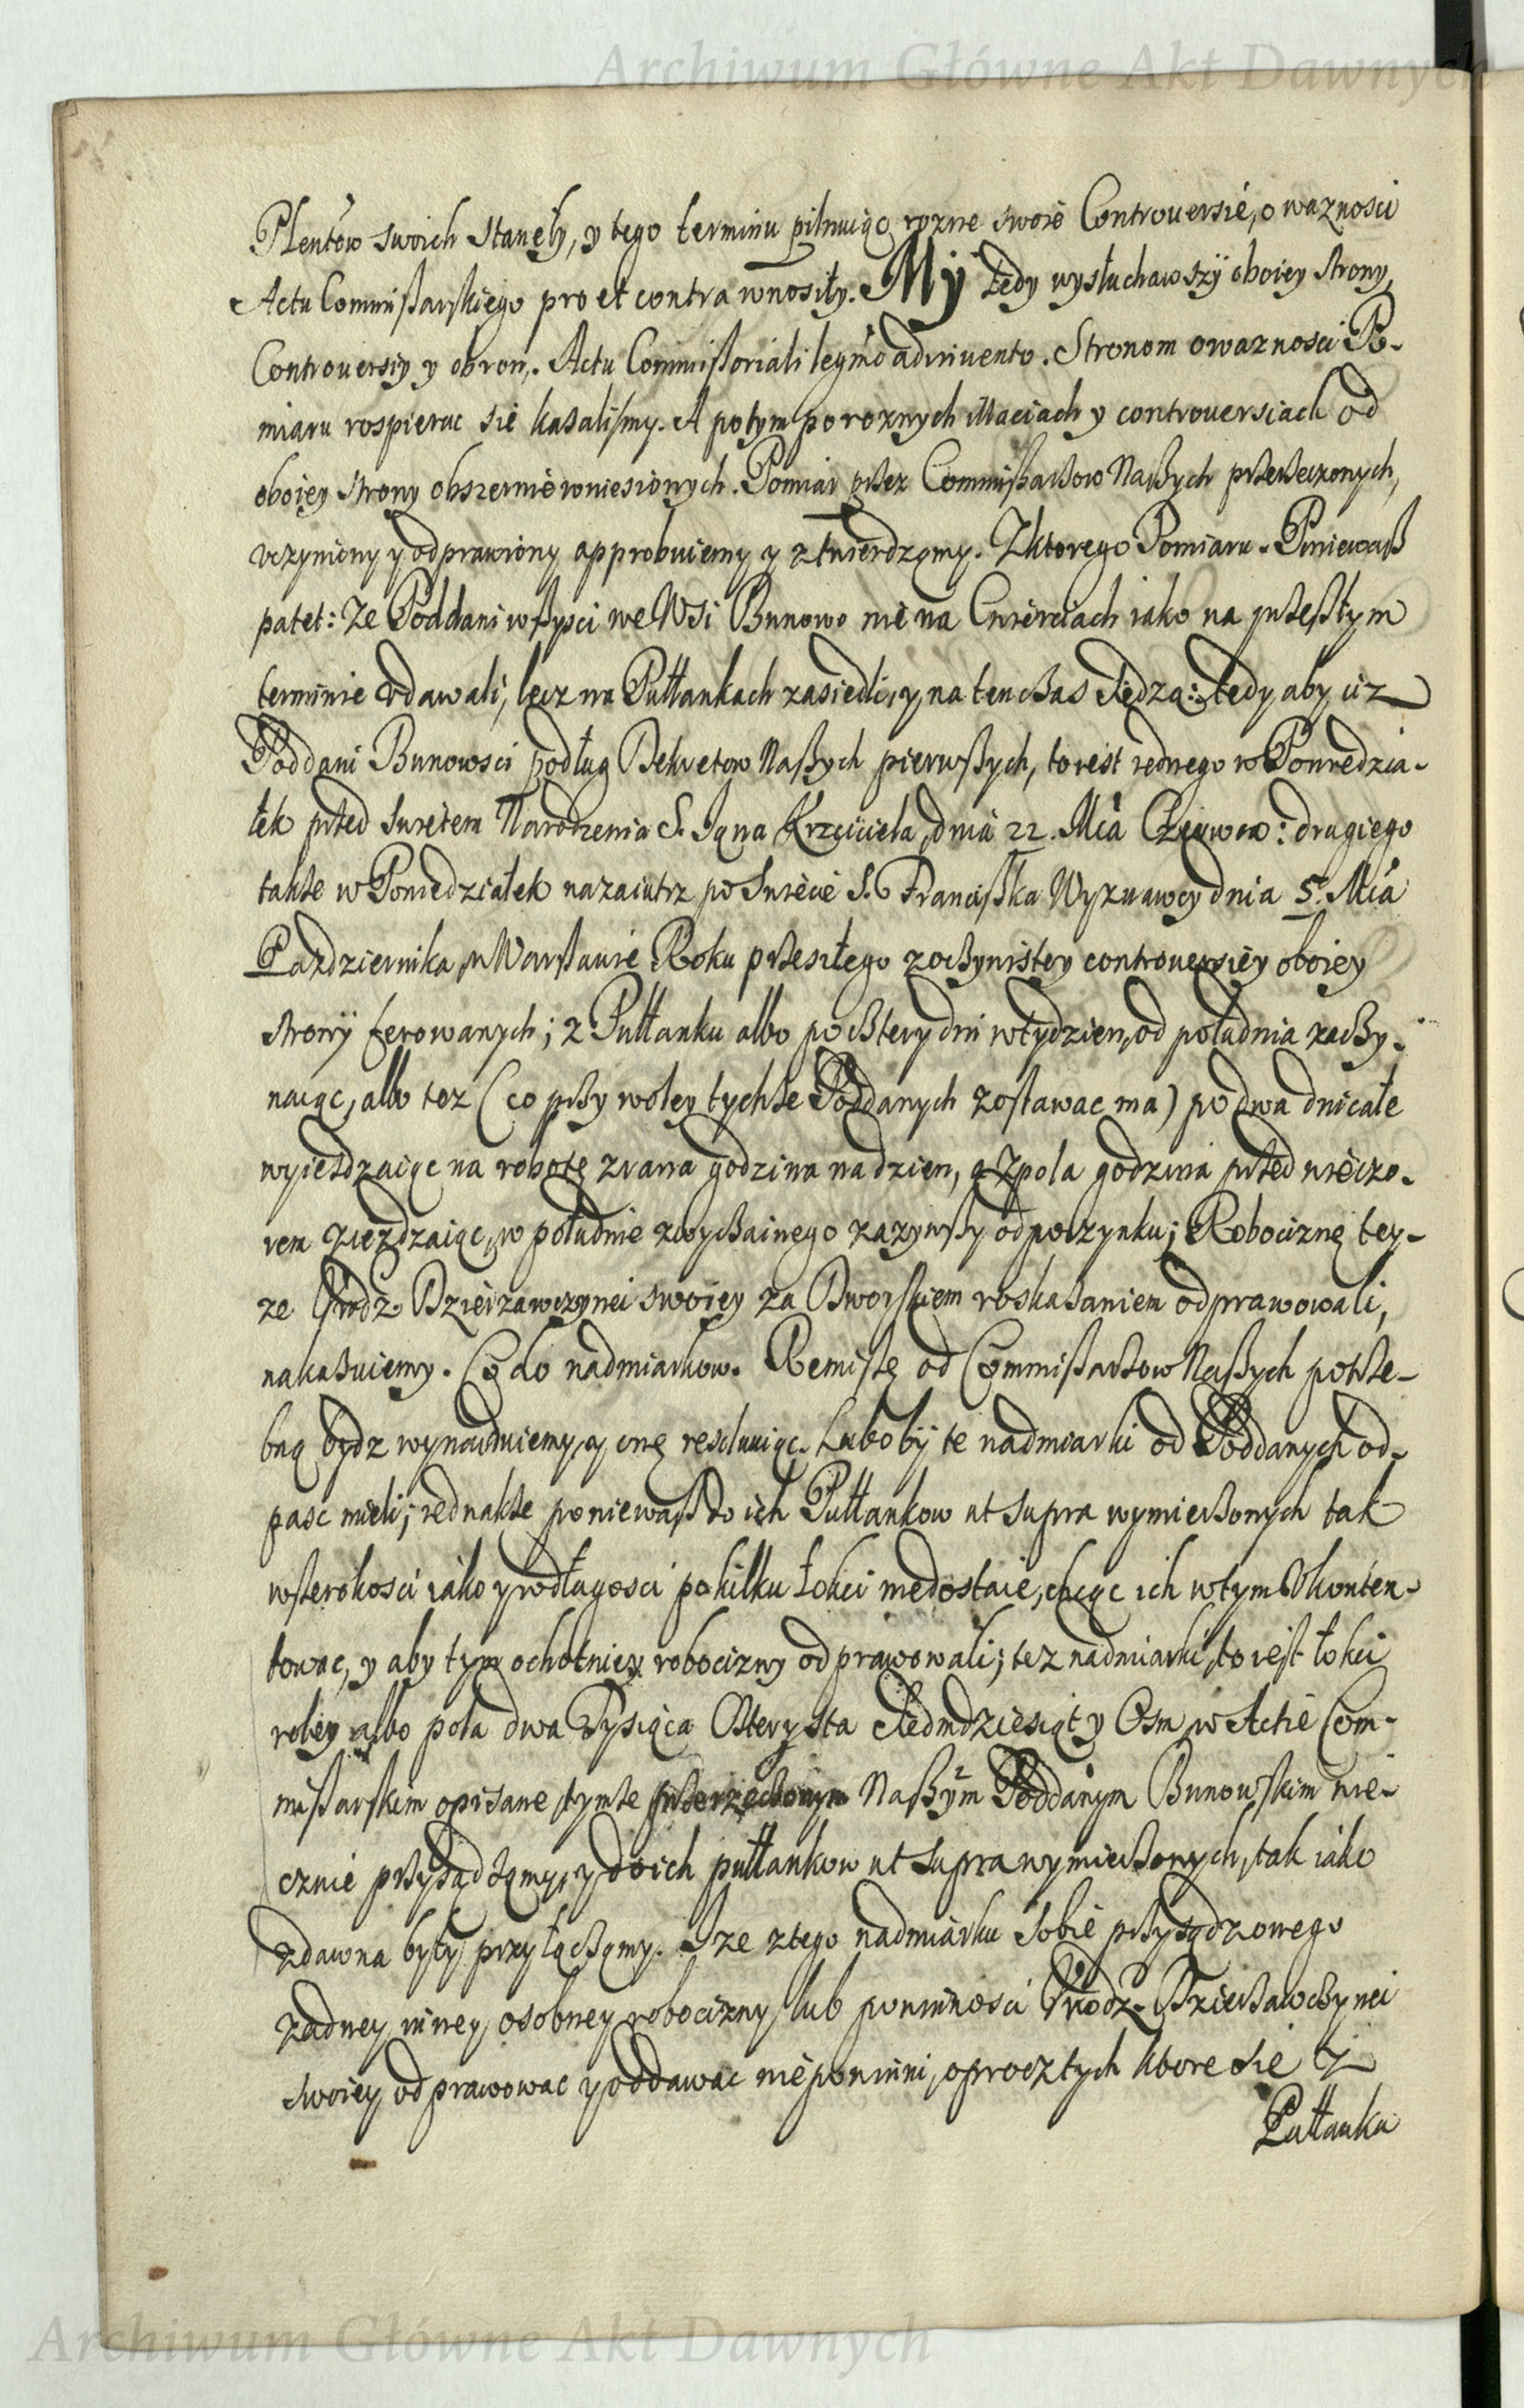 Archiwum Główne Akt Dawnych
Plentow swoich stanęły, y tego terminu pilnuiąc rozne swoie Controuersie, o waznosci
Actu Commißarskiego pro et contra wnosiły. My tedy wysłuchawszÿ oboiey strony,
Controuersiy y obron. Actu Commißoriali legitmo adinuento. Stronom o waznosci Po-
miaru rospierac się kazalismy. A potym po roznych illaciach y controuersiach od
oboiey strony obszernie wniesionych. Pomiar przez Commißarzow Naßych przerzeczonych,
vczyniony y odprawiony approbuiemy y ztwierdzamy. Z ktorego Pomiaru. Poniewaß
patet: Ze Poddani wßysci we Wsi Bunowo nie na Cwierciach iako na przeßłym
terminie vdawali, lecz na Pułłankach zasiedli, y na ten czas siedzą: tedy aby ciz
Poddani Bunowsci podług Dekretow Naßych pierwßych, to iest iednego w Poniedzia-
łek przed swiętem Narodzenia S. Iana Krzciciela, dnia 22. Mca Czerwca: drugiego
takze w Poniedziałek nazaiutrz po swięcie S. Franciska Wyznawcy dnia 5. Mca
Pazdziernika w Warßawie Roku przeszłego z oczywistey controuersiey oboiey
stronÿ ferowanych; z Pułłanku albo po cztery dni w tydzien, od południa zaczy-
naiąc, albo tez (co przy woley tychze Poddanych zostawac ma) po dwa dni całe
wyiezdzaiąc na robotę z rana godzina na dzien, a z pola godzina przed wieczo-
rem ziezdzaiąc, w południe zwyczainego zazywßy odpoczynku; Robociznę tey-
ze Urodz. Dzierzawczynei swoiey za Dworskiem roskazaniem odprawowali,
nakazuiemy. Co do nadmiarkow. Remissę od Commißarzow Naßych potrze-
bną bydz wynayduiemy, y onę resoluuiąc. Lubobÿ te nadmiarki od Poddanych od-
pasc mieli; iednakze poniewaß do ich Pułłankow ut supra wymierzonych tak
w szerokosci iako y w długosci po kilku łokci niedostaie, chcąc ich w tym Vkonten-
towac, y aby tym ochotniey robocizny odprawowali; tez nadmiarki, to iest łokci
roley albo pola dwa Tysiąca Czterysta Siedmdziesiąt y Osm w Actie Com-
mißarskim opisane, tymze przerzeczonym Naßym Poddanym Bunowskim wie-
cznie przysądzamy, y do ich pułłankow ut supra wymierzonych, tak iako
zdawna były, przyłączamy. I ze z tego nadmiarku sobie przysądzonego
zadney inney, osobney robocizny, lub powinnosci Urodz. Dzierzawczynei
swoiey odprawowac y oddawac nie powinni, oprocz tych ktore się z
Pułłanku
Archiwum Główne Akt Dawnych